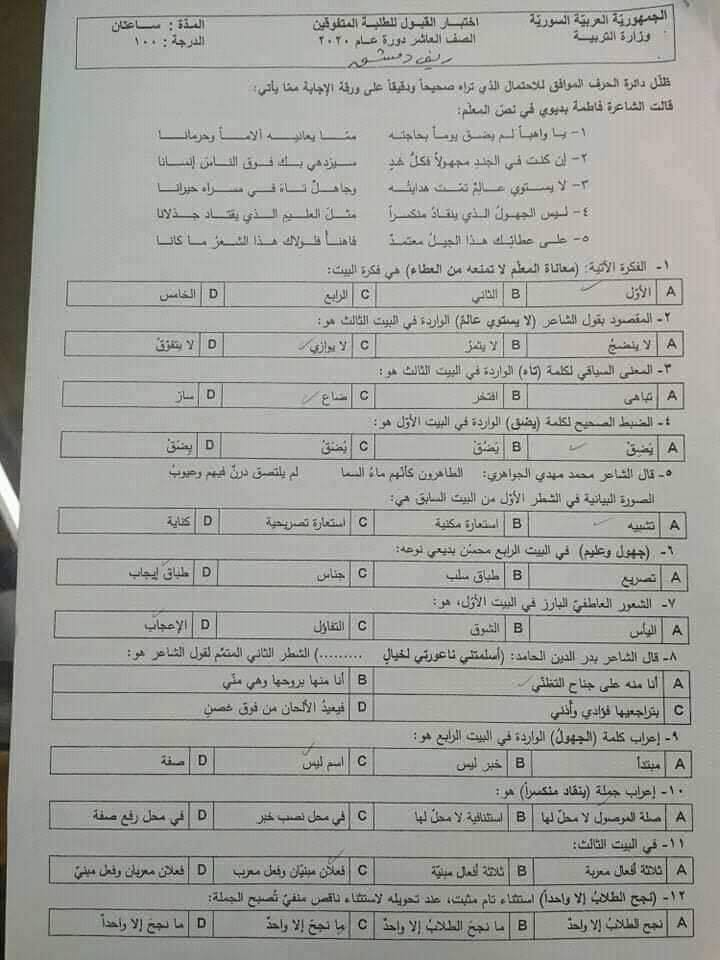 الجمهوريّة العربيّة السوريّة اختبار القبول للطلبة المتفوقين المدّة : ساعتان
وزارة التربيــة الصف العاشر دورة عــام ٢٠٢٠ الدرجة : ١٠٠
ريف دمشق
ظلّل دائرة الحرف الموافق للاحتمال الذي تراه صحيحاً ودقيقاً على ورقة الإجابة ممّا يأتي:
قالت الشاعرة فاطمة بديوي في نصّ المعلّم:
١- يــا واهبــاً لــم يضــق يومــاً بحاجتــه ممّــا يعانيــه آلامــاً وحرمانــا
٢- إن كنت في الجندِ مجهولاً فكلُّ غدٍ سيزدهي بـك فـوق النـاسِ إنسـانا
٣- لا يســتوي عــالمٌ تمّــت هدايتُــه وجاهـلٌ تـاهَ فـي مسـراه حيرانـا
٤- ليس الجهولُ الذي ينقادُ منكسراً مثـلَ العلـيمِ الـذي يقتـاد جـذلانا
٥- على عطائِك هذا الجيلُ معتمدٌ فاهنـأ فلـولاك هـذا الشـعرُ مـا كانـا
١- الفكرة الآتية: (معاناة المعلّم لا تمنعه من العطاء) هي فكرة البيت:
A الأوّل B الثاني C الرابع D الخامس
٢- المقصود بقول الشاعر (لا يستوي عالمٌ) الواردة في البيت الثالث هو:
A لا ينضجُ B لا يثمرُ C لا يوازي D لا يتفوّقُ
٣- المعنى السياقي لكلمة (تاه) الواردة في البيت الثالث هو:
A تباهى B افتخر C ضاع D سار
٤- الضبط الصحيح لكلمة (يضق) الواردة في البيت الأوّل هو:
A يَضِقْ B يَضُقْ C يُضَقْ D يِضَقْ
٥- قال الشاعر محمد مهدي الجواهري: الطاهرون كأنّهم ماءُ السما لم يلتصق درنٌ فيهم وعيوبُ
الصورة البيانية في الشطر الأوّل من البيت السابق هي:
A تشبيه B استعارة مكنية C استعارة تصريحية D كناية
٦- (جهول وعليم) في البيت الرابع محسّن بديعي نوعه:
A تصريع B طباق سلب C جناس D طباق إيجاب
٧- الشعور العاطفيّ البارز في البيت الأوّل، هو:
A اليأس B الشوق C التفاؤل D الإعجاب
٨- قال الشاعر بدر الدين الحامد: (أسلمتني ناعورتي لخيالٍ ..........) الشطر الثاني المتمّم لقول الشاعر هو:
A أنا منه على جناح التظنّي B أنا منها بروحها وهي منّي
C بتراجيعها فؤادي وأذني D فيعيدُ الألحان من فوق غصنِ
٩- إعراب كلمة (الجهولُ) الواردة في البيت الرابع هو:
A مبتدأ B خبر ليس C اسم ليس D صفة
١٠- إعراب جملة (ينقاد منكسراً) هو:
A صلة الموصول لا محلّ لها B استئنافية لا محلّ لها C في محل نصب خبر D في محل رفع صفة
١١- في البيت الثالث:
A ثلاثة أفعال معربة B ثلاثة أفعال مبنيّة C فعلان مبنيّان وفعل معرب D فعلان معربان وفعل مبنيّ
١٢- (نجح الطلابُ إلا واحداً) استثناء تام مثبت، عند تحويله لاستثناء ناقص منفيّ تُصبح الجملة:
A نجح الطلابُ إلا واحدٌ B ما نجحَ الطلابُ إلا واحدٌ C ما نجحَ إلا واحدٌ D ما نجحَ إلا واحداً